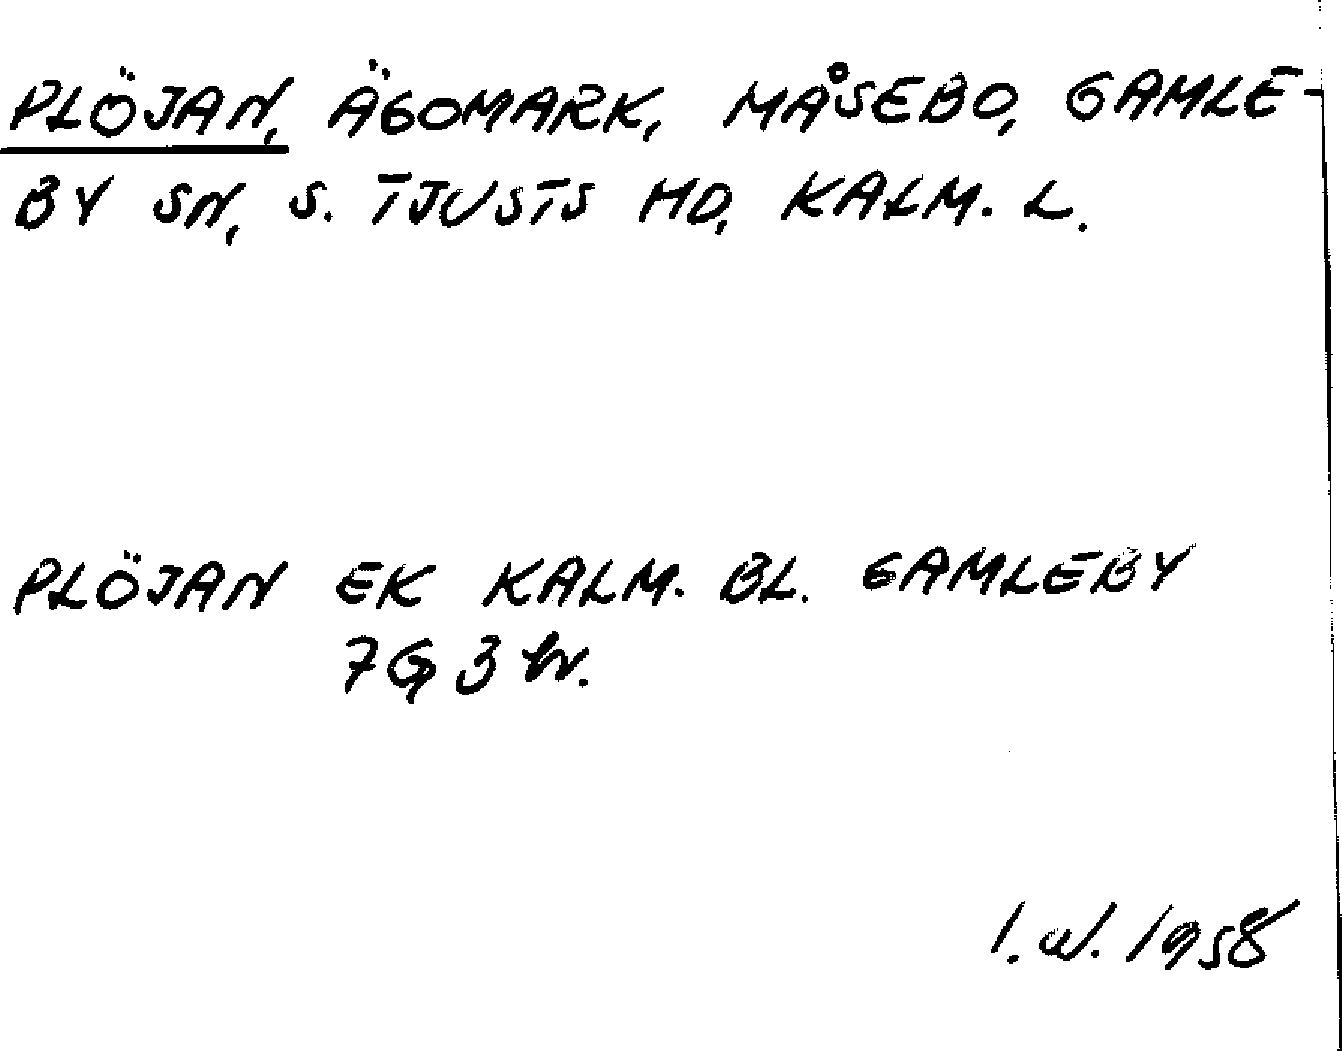 PLÖJAN, ÄGOMARK, MÅSEBO, GAMLE-
BY SN, S. TJUSTS HD, KALM. L.
PLÖJAN EK KALM. BL. GAMLEBY
7G 3
I. W. 1958